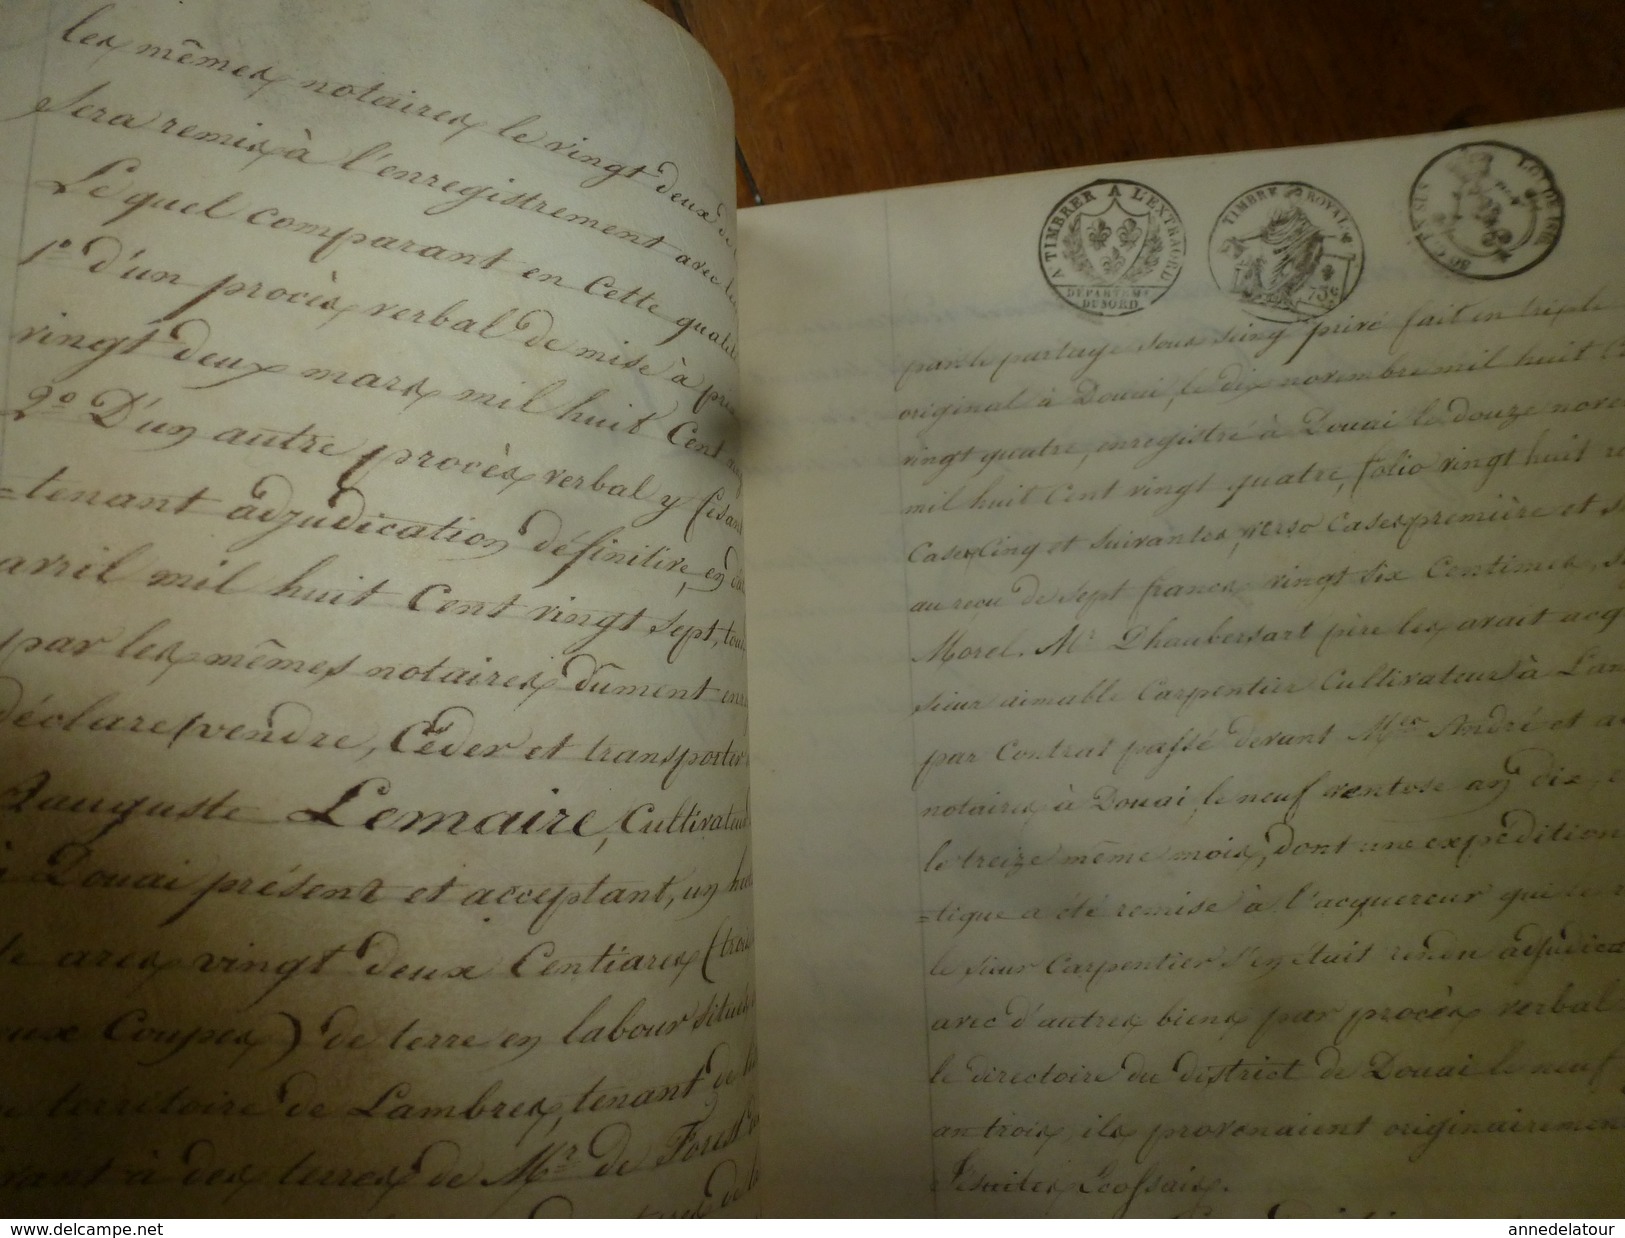 les mêmes notaires le vingt deux de
sera remis à l'enregistrement avec les
Le quel comparant en cette qualité
1º d'un procès verbal de mise à prix
vingt deux mars mil huit Cent vingt
2º D'un autre procès verbal y fesant
=tenant adjudication définitive, en
avril mil huit Cent vingt sept, tous
par les mêmes notaires dûment enre
déclare vendre, Céder et transporter
auguste Lemaire, Cultivateur
à Douai présent et acceptant, un hec
ares vingt deux Centiares (trois
eux Coupes) de terre en labour située
territoire de Lambres, tenant de
à des terres de Mr. de Forest
A TIMBRER A L'EXTRAORD
DÉPARTEMt
DU NORD
TIMBRE ROYAL
75c
LOI DE 1816
par le partage sous seing privé fait en triple
original à Douai, le dix novembre mil huit Ce
vingt quatre, enregistré à Douai le douze nove
mil huit Cent vingt quatre, folio vingt huit re
Cases Cinq et suivantes, verso Cases première et s
au reçu de sept francs vingt six Centimes, s
Morel. Mr Dhaubersart père les avait acq
sieur aimable Carpentier Cultivateur à Lam
par Contrat passé devant Mes André et a
notaires à Douai, le neuf ventose an dix, e
le treize même mois, dont une expédition
=tique a été remise à l'acquereur qui le r
le sieur Carpentier s'en était rendu adjudica
avec d'autres biens par procès verbal
le directoire du district de Douai le neuf
an trois, ils provenaient originairemen
Jesuites Ecossais.
www.delcampe.net
annedelatour